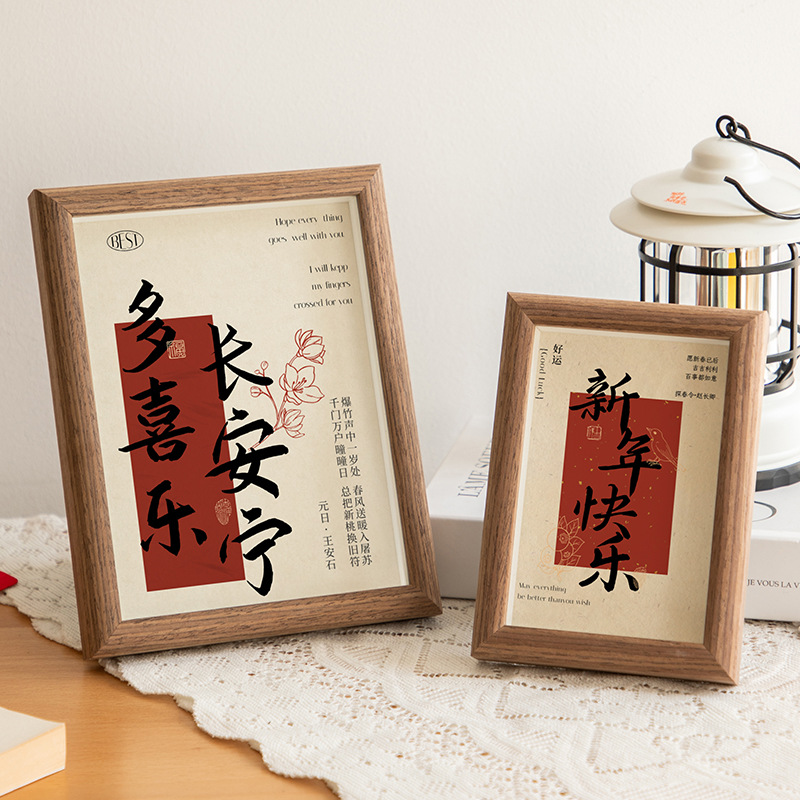 BEST
Hope every thing
goes well with you.
I will kepp
my fingers
crossed for you
多喜乐
长安宁
爆竹声中一岁处 春风送暖入屠苏
千门万户瞳瞳日 总把新桃换旧符
元日·王安石
好运
[Good Luck]
愿新春已后
吉吉利利
百事都如意
探春令·赵长卿
新年快乐
May everything
be better thanyou wish
JE VOUS